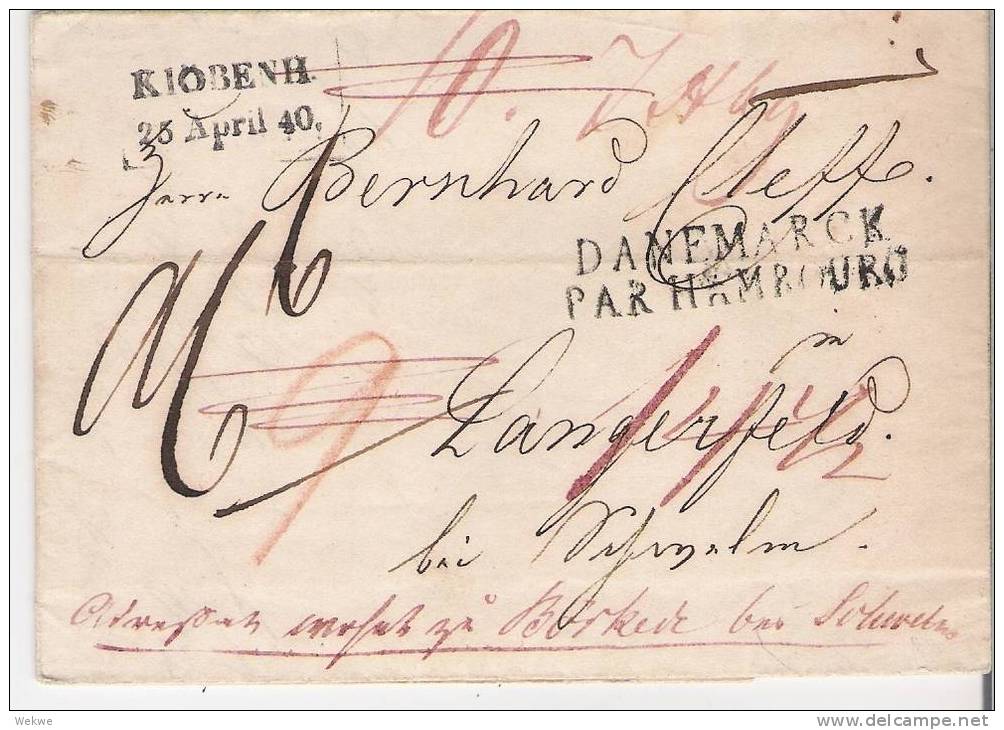 KIÖBENH.
25 April 40.
10. 7
Herrn Bernhard Cleff.
DANEMARCK
PAR HAMBOURG
in
9
Langerfeld.
bei Schwelm.
Adressat wohnt zu bei Schwelm
Wekwe
www.delcampe.net